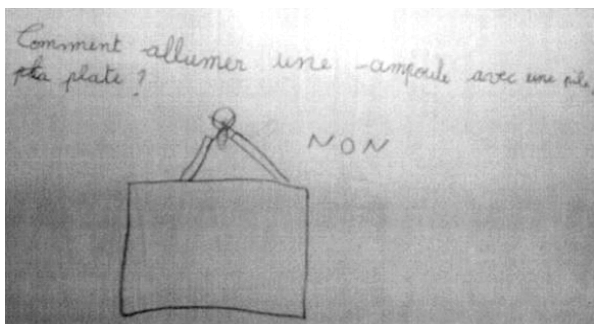 Comment allumer une ampoule avec une pile
plate ?
NON